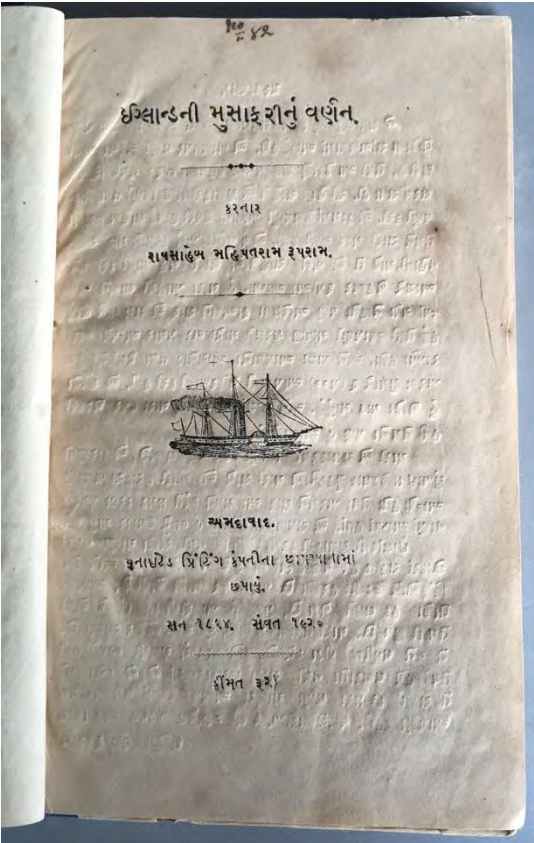 ઈંગ્લાન્ડની મુસાફરીનું વર્ણન.
કરનાર
રાવસાહેબ મહિપતરામ રૂપરામ.
અમદાવાદ.
યુનાઈટેડ પ્રિંટિંગ કંપનીના છાપખાનામાં
છપાયું.
સન ૧૮૬૪. સંવત ૧૯૨૦
કીંમત રૂ૨)